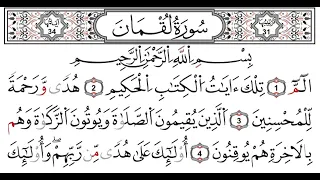 سُورَةُ لُقْمَانَ
34
31
بِسْمِ اللَّهِ الرَّحْمَٰنِ الرَّحِيمِ
الٓمٓ 1 تِلْكَ ءَايَٰتُ الْكِتَٰبِ الْحَكِيمِ 2 هُدًى وَرَحْمَةً
لِّلْمُحْسِنِينَ 3 الَّذِينَ يُقِيمُونَ الصَّلَوٰةَ وَيُؤْتُونَ الزَّكَوٰةَ وَهُم
بِالْءَاخِرَةِ هُمْ يُوقِنُونَ 4 أُو۟لَٰٓئِكَ عَلَىٰ هُدًى مِّن رَّبِّهِمْ وَأُو۟لَٰٓئِكَ